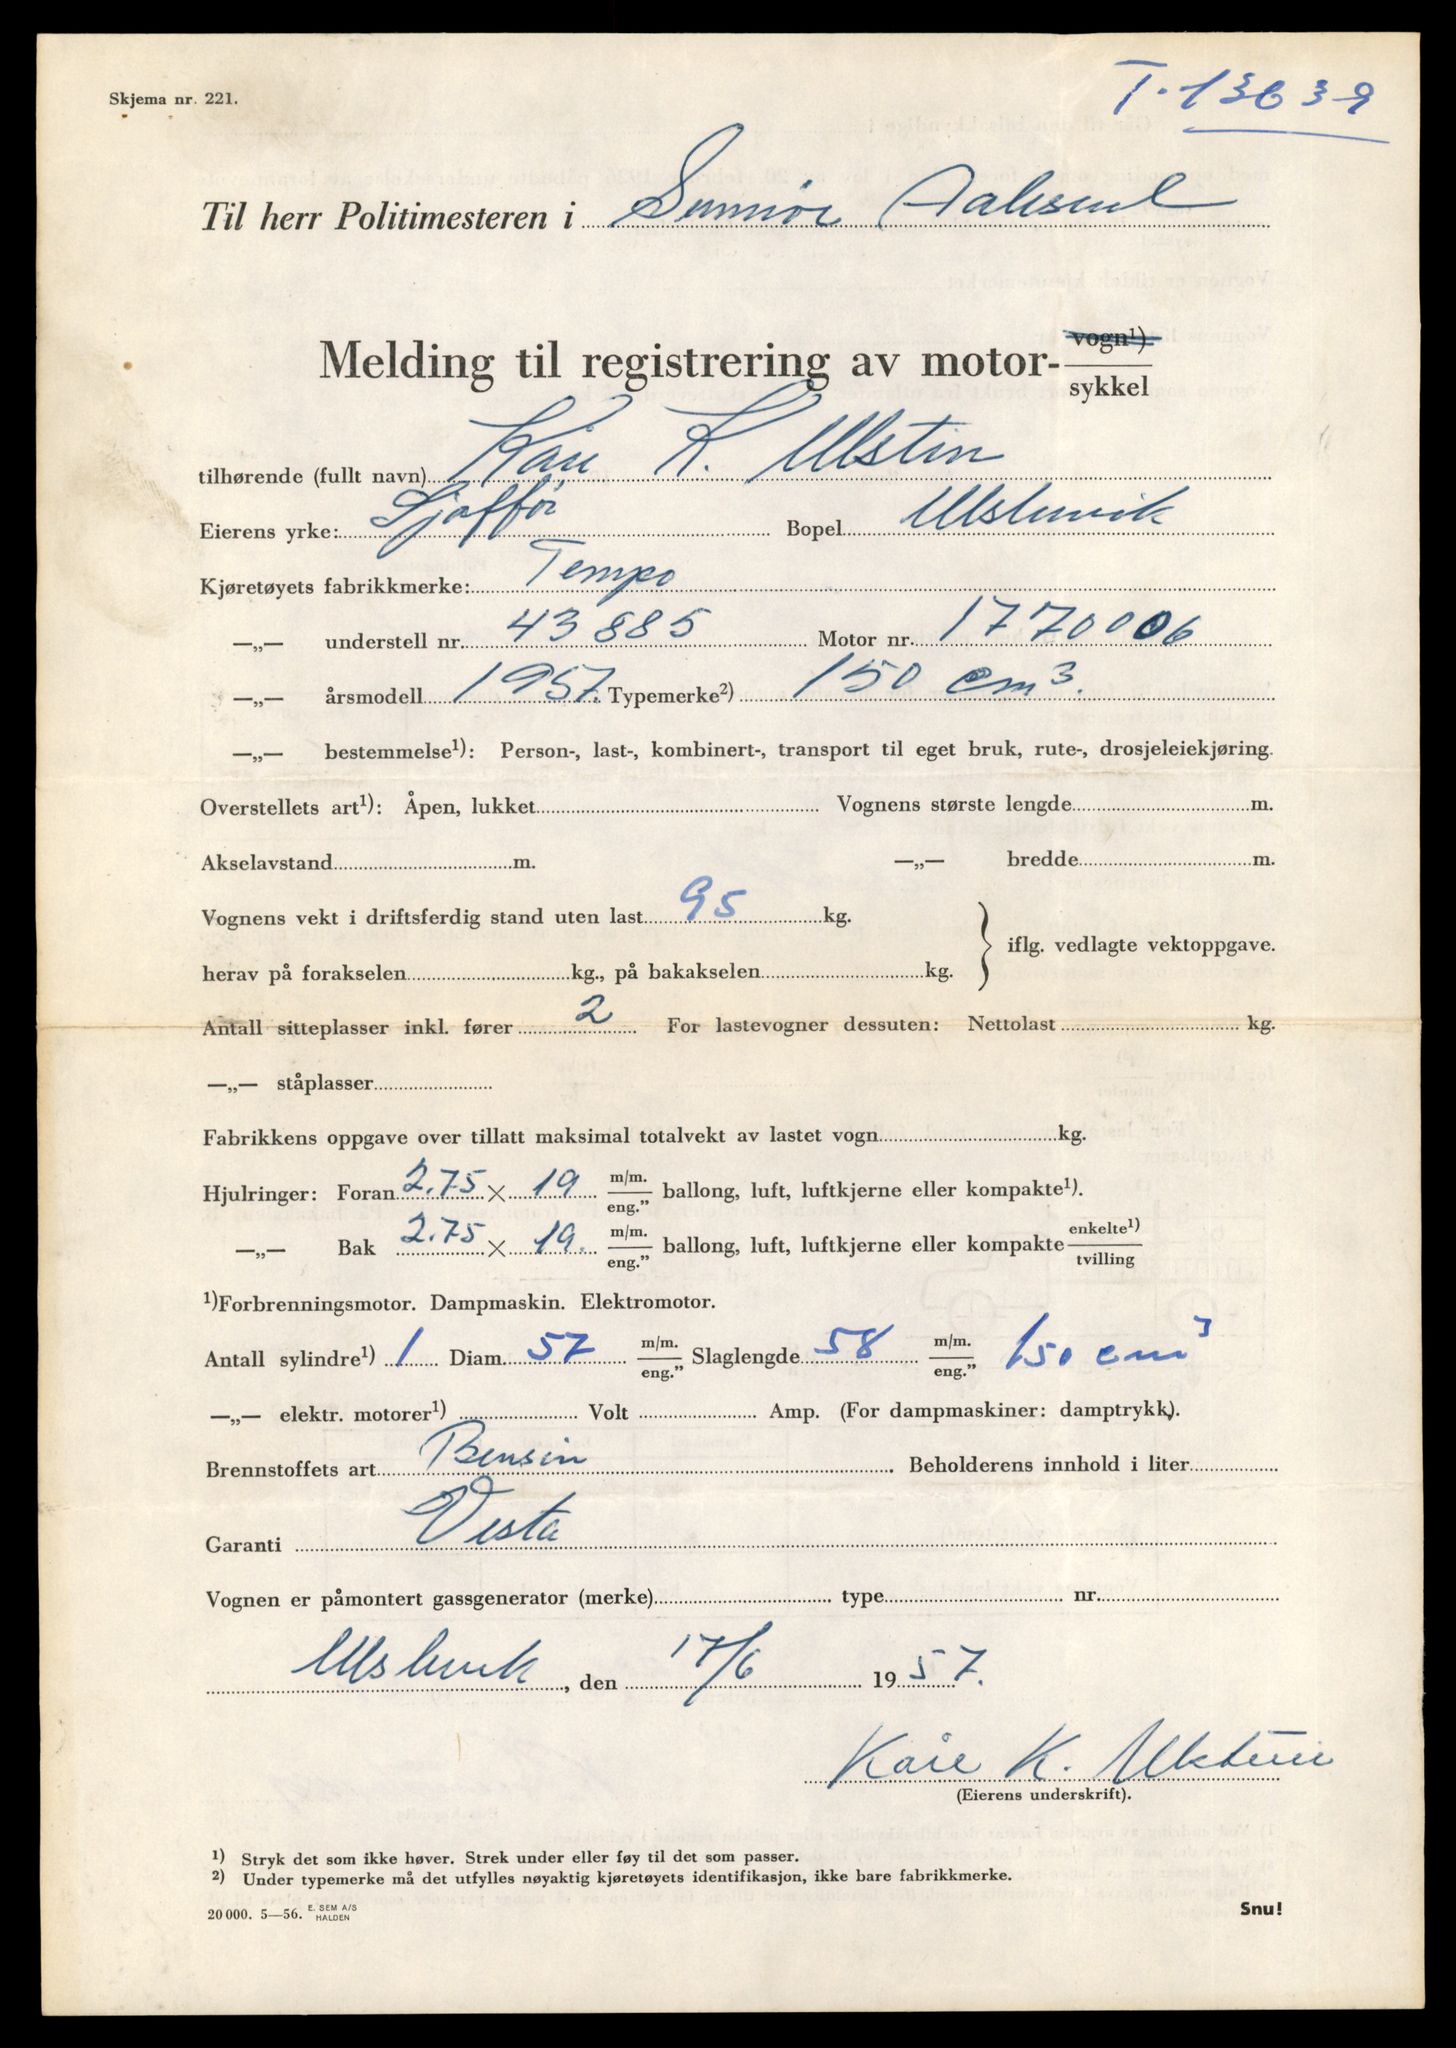 Skjema nr. 221.
T-13639
Til herr Politimesteren i Sunnmøre Aalesund
Melding til registrering av motor- vogn¹) sykkel
tilhørende (fullt navn) Kåre K. Ulstein
Eierens yrke: Sjåffør Bopel Ulsteinvik
Kjøretøyets fabrikkmerke: Tempo
—„— understell nr. 43885 Motor nr. 1770006
—„— årsmodell 1957. Typemerke²) 150 cm³.
—„— bestemmelse¹): Person-, last-, kombinert-, transport til eget bruk, rute-, drosjeleiekjøring.
Overstellets art¹): Åpen, lukket Vognens største lengde m.
Akselavstand m. —„— bredde m.
Vognens vekt i driftsferdig stand uten last 95 kg.
iflg. vedlagte vektoppgave.
herav på forakselen kg., på bakakselen kg.
Antall sitteplasser inkl. fører 2 For lastevogner dessuten: Nettolast kg.
—„— ståplasser
Fabrikkens oppgave over tillatt maksimal totalvekt av lastet vogn kg.
Hjulringer: Foran 2.75 × 19 m/m. eng.” ballong, luft, luftkjerne eller kompakte¹).
—„— Bak 2.75 × 19. m/m. eng.” ballong, luft, luftkjerne eller kompakte enkelte¹) tvilling
¹)Forbrenningsmotor. Dampmaskin. Elektromotor.
Antall sylindre¹) 1 Diam. 57 m/m. eng.” Slaglengde 58 m/m. eng.” 150 cm³
—„— elektr. motorer¹) Volt Amp. (For dampmaskiner: damptrykk).
Brennstoffets art Bensin Beholderens innhold i liter
Garanti Vesta
Vognen er påmontert gassgenerator (merke) type nr.
Ulsteinvik, den 17/6 1957.
Kåre K. Ulstein
(Eierens underskrift).
¹) Stryk det som ikke høver. Strek under eller føy til det som passer.
²) Under typemerke må det utfylles nøyaktig kjøretøyets identifikasjon, ikke bare fabrikkmerke.
20 000. 5—56. E. SEM A/S HALDEN
Snu!